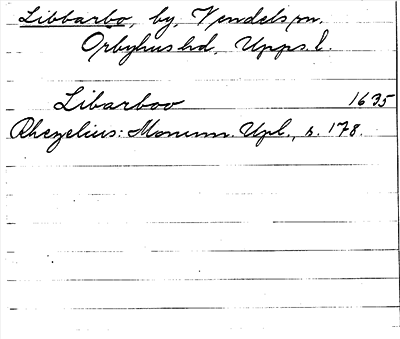 Libbarbo, by, Vendels sn.
Örbyhus hd, Upps. l.
Libarboo 1635
Rhezelius: Monum. Upl., s. 178.